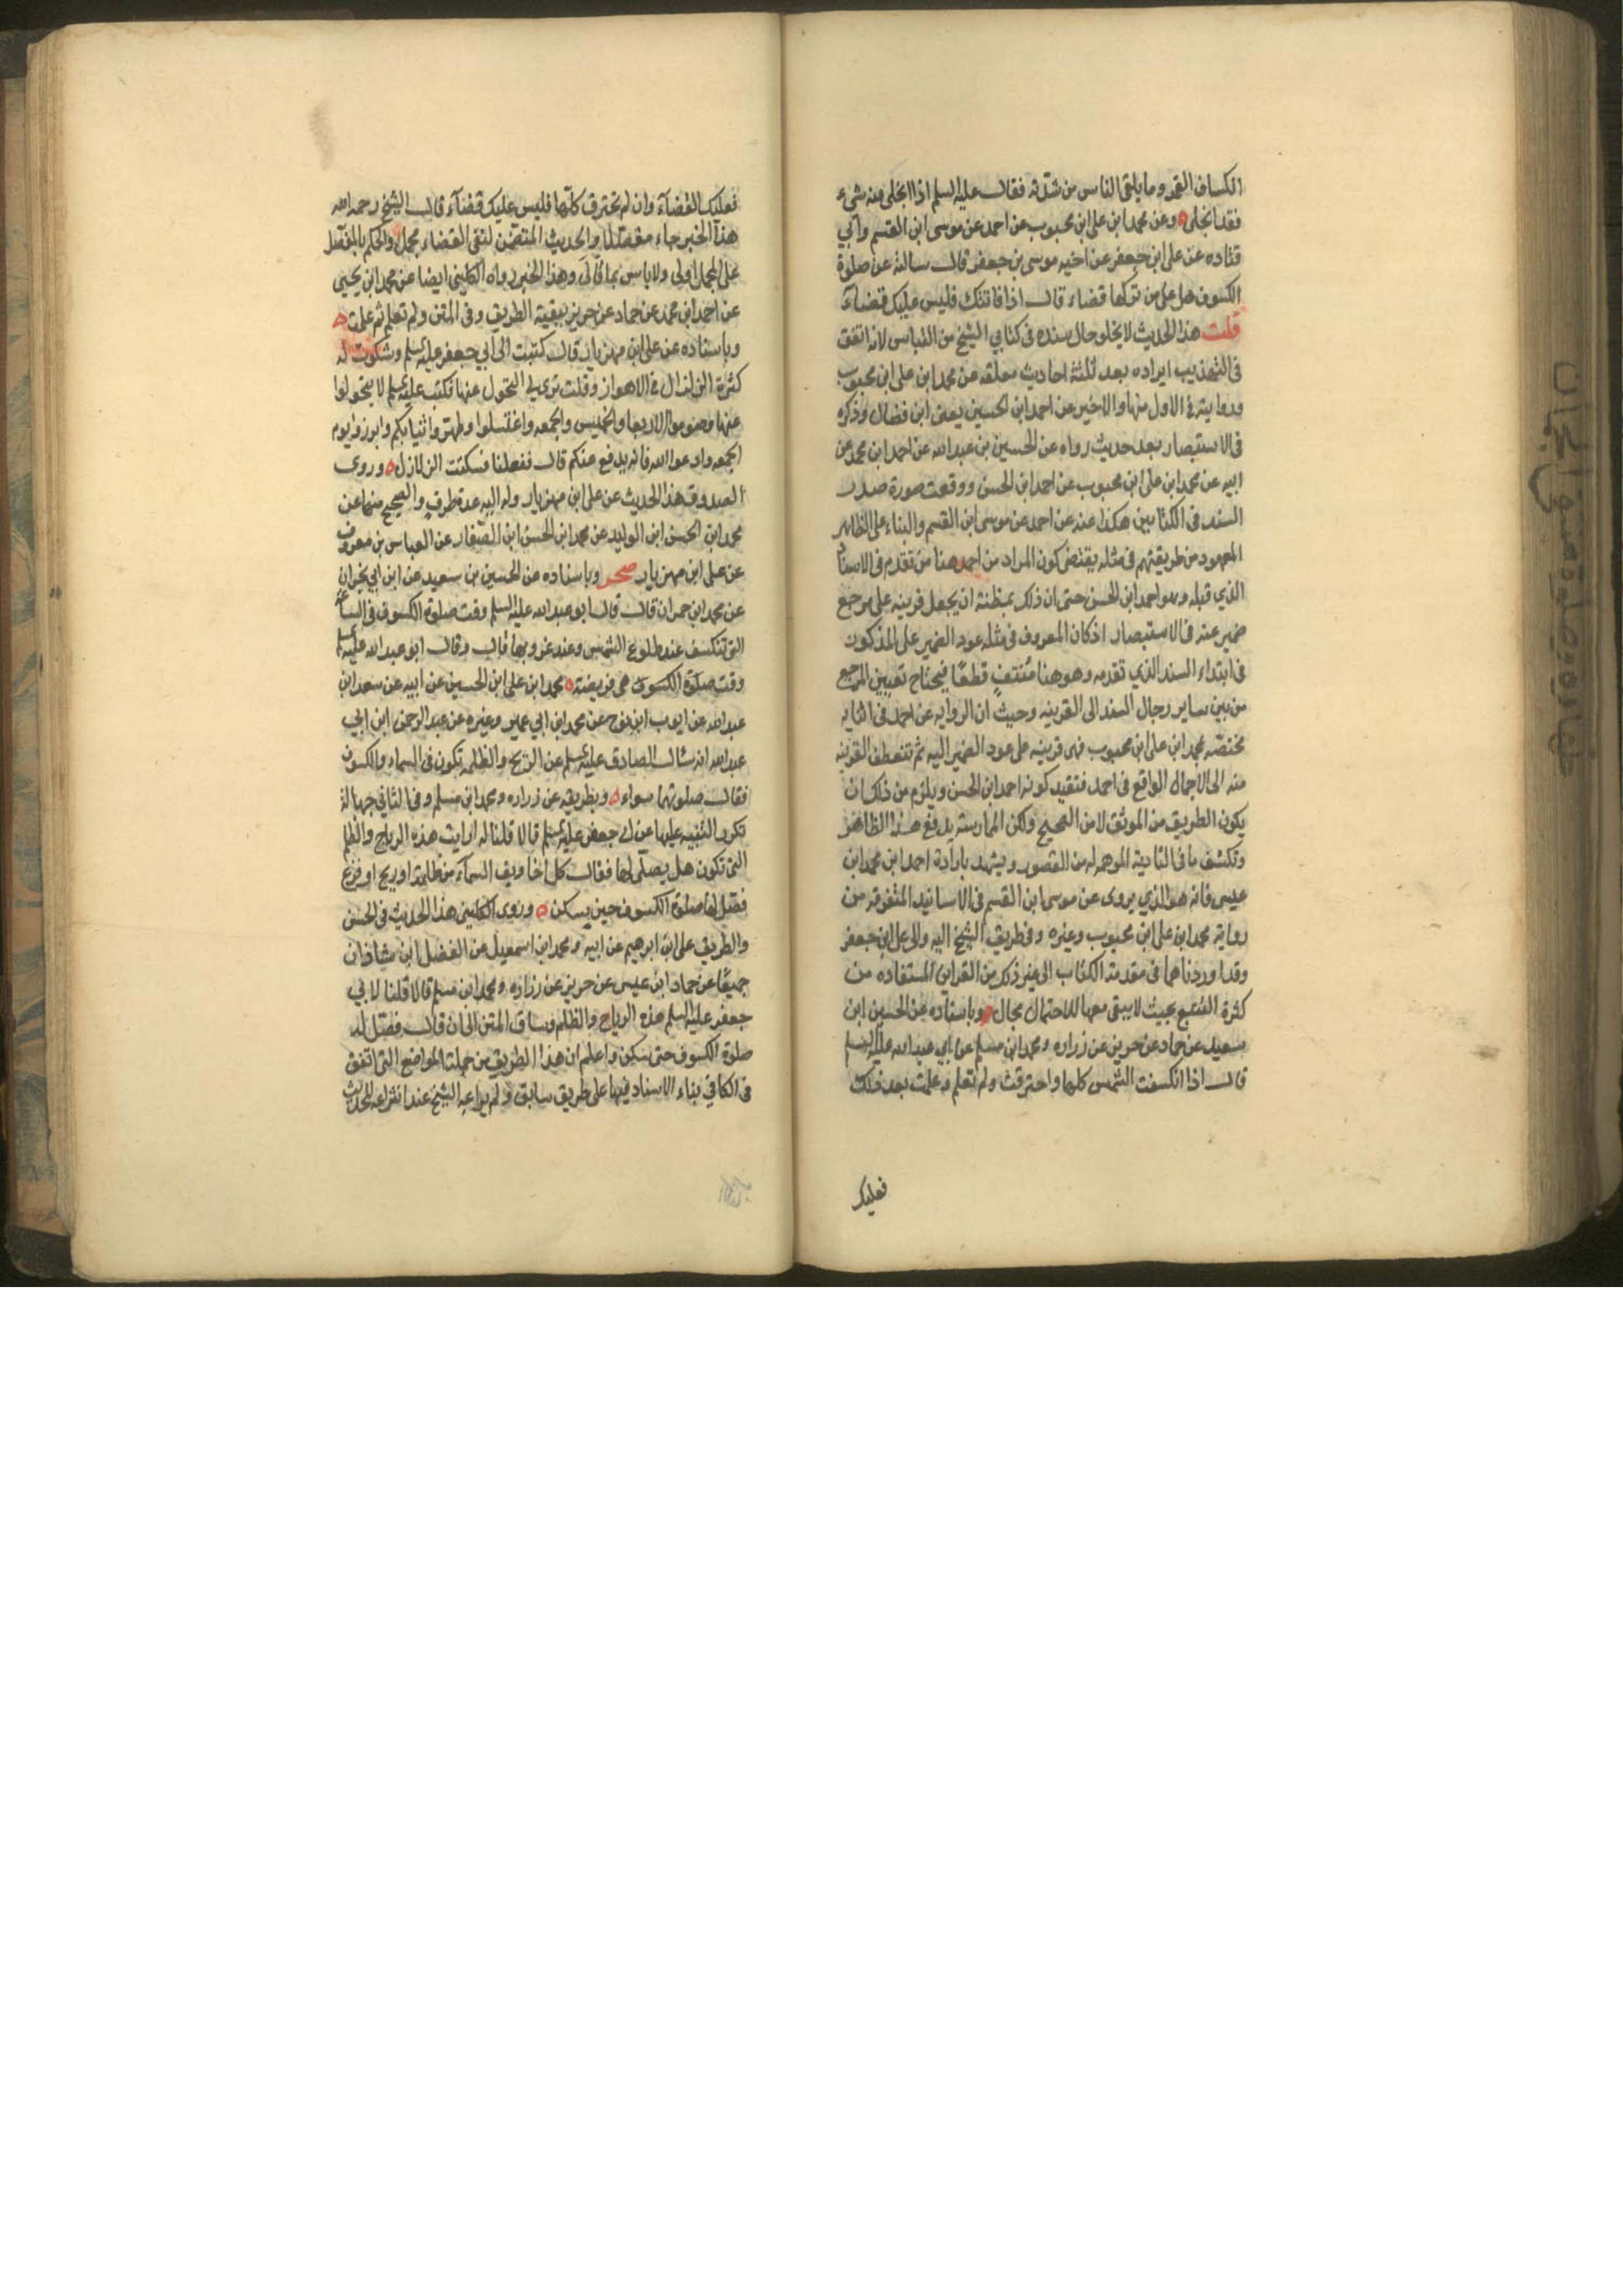 انكساف القمر وما يلقى الناس من شدته فقال عليه السلم اذا انجلى منه شيء
فقد انجلى ه وعن محمد ابن على ابن محبوب عن احمد عن موسى ابن القسم وابي
قتاده عن على ابن جعفر عن اخيه موسى بن جعفر قال سالته عن صلوة
الكسوف هل على من تركها قضاء قال اذا فاتتك فليس عليك قضاء
قلت هذا الحديث لا يخلو حال سنده فى كتابي الشيخ من التباس لانه اتفق
فى التهذيب ايراده بعد ثلثة احاديث معلقه عن محمد ابن على ابن محبوب
وروايته فى الاول منها والاخير عن احمد ابن الحسين يعنى ابن فضال وذكره
فى الاستبصار بعد حديث رواه عن الحسين بن عبد الله عن احمد ابن محمد عن
ابيه عن محمد ابن على ابن محبوب عن احمد ابن الحسن ووقعت صورة صدر
السند فى الكتابين هكذا عنه عن احمد عن موسى ابن القسم والبناء على الظاهر
المعهود من طريقتهم فى مثله يقتضى كون المراد من احمد هنا من تقدم فى الاسناد
الذي قبله وهو احمد ابن الحسن حتى ان ذلك بمظنة ان يجعل قرينه على مرجع
ضمير عنه فى الاستبصار اذ كان المعروف فى مثله عود الضمير على المذكور
فى ابتداء السند الذي تقدمه وهو هنا منتف قطعا فيحتاج تعيين المرجع
من بين ساير رجال السند الى القرينه وحيث ان الروايه عن احمد فى
مختصه بمحمد ابن على ابن محبوب فهى قرينه على عود الضمير اليه ثم تنعطف القرينه
منه الى الاجمال الواقع فى احمد فتفيد كونه احمد ابن الحسن ويلزم من ذلك ان
يكون الطريق من الموثق لا من الصحيح ولكن الممارسة يدفع هذا الظاهر
وتكشف ما فى التادية الموهمه له من القصور ويشهد بارادة احمد ابن محمد ابن
عيسى فانه هو الذي يروى عن موسى ابن القسم فى الاسانيد المتفرقه من
رواية محمد ابن على ابن محبوب وغيره وفى طريق الشيخ اليه والى على ابن جعفر
وقد اوردناهما فى مقدمة الكتاب الى غير ذلك من القراين المستفاده من
كثرة التتبع بحيث لا يبقى معها للاحتمال مجال ه وباسناده عن الحسين ابن
سعيد عن حماد عن حريز عن زراره ومحمد ابن مسلم عن ابي عبد الله عليه السلم
قال اذا انكسفت الشمس كلها واحترقت ولم تعلم وعلمت بعد ذلك
فعليك
فعليك القضاء وان لم تحترق كلها فليس عليك قضاء قال الشيخ رحمه الله
هذا الخبر جاء مفصلا والحديث المتضمن لنفى القضاء مجمل والحكم بالمفصل
على المجمل اولى ولا باس بما قاله وهذا الخبر رواه الكليني ايضا عن محمد ابن يحيى
عن احمد ابن محمد عن حماد عن حريز ببقية الطريق وفى المتن ولم تعلم ثم علمت ه
وباسناده عن على ابن مهزيار قال كتبت الى ابي جعفر عليه السلم وشكوت له
كثرة الزلازل فى الاهواز وقلت ترى لى التحول عنها فكتب عليه السلم لا تتحولوا
عنها وصوموا الاربعا والخميس والجمعه واغتسلوا وطهروا ثيابكم وابرزوا يوم
الجمعه وادعوا الله فانه يدفع عنكم قال ففعلنا فسكنت الزلازل ه وروى
الصدوق هذا الحديث عن على ابن مهزيار وله اليه عدة طرق والصحيح منها عن
محمد ابن الحسن ابن الوليد عن محمد ابن الحسن ابن الصفار عن العباس بن معروف
عن على ابن مهزيار صحر وباسناده عن الحسين بن سعيد عن ابن ابي نجران
عن محمد ابن حمران قال قال ابو عبد الله عليه السلم وقت صلوة الكسوف فى الساعة
التى تنكسف عند طلوع الشمس وعند غروبها قال وقال ابو عبد الله عليه السلم
وقت صلوة الكسوف هى فريضة ه محمد ابن على ابن الحسين عن ابيه عن سعد ابن
عبد الله عن ايوب ابن نوح عن محمد ابن ابي عمير وغيره عن عبد الرحمن ابن ابي
عبد الله انه سئال الصادق عليه السلم عن الريح والظلمه تكون فى السماء والكسوف
فقال صلوتهما سواء ه وبطريقه عن زراره ومحمد ابن مسلم وفى الثاني جهالة
تكرر التنبيه عليها عن ابى جعفر عليه السلم قالا قلنا له ارايت هذه الرياح والظلم
التى تكون هل يصلى لها فقال كل اخاويف السماء من ظلمة او ريح او فزع
فصل لها صلوة الكسوف حين يسكن ه وروى الكليني هذا الحديث فى الحسن
والطريق على ابن ابرهيم عن ابيه ومحمد ابن اسمعيل عن الفضل ابن شاذان
جميعا عن حماد ابن عيسى عن حريز عن زراره ومحمد ابن مسلم قالا قلنا لابي
جعفر عليه السلم هذه الرياح والظلم وساق المتن الى ان قال فصل له
صلوة الكسوف حتى يسكن واعلم ان هذا الطريق من جملة المواضع التى اتفق
فى الكافي بناء الاسناد فيها على طريق سابق ولم يراعه الشيخ عند انتزاعه للحديث